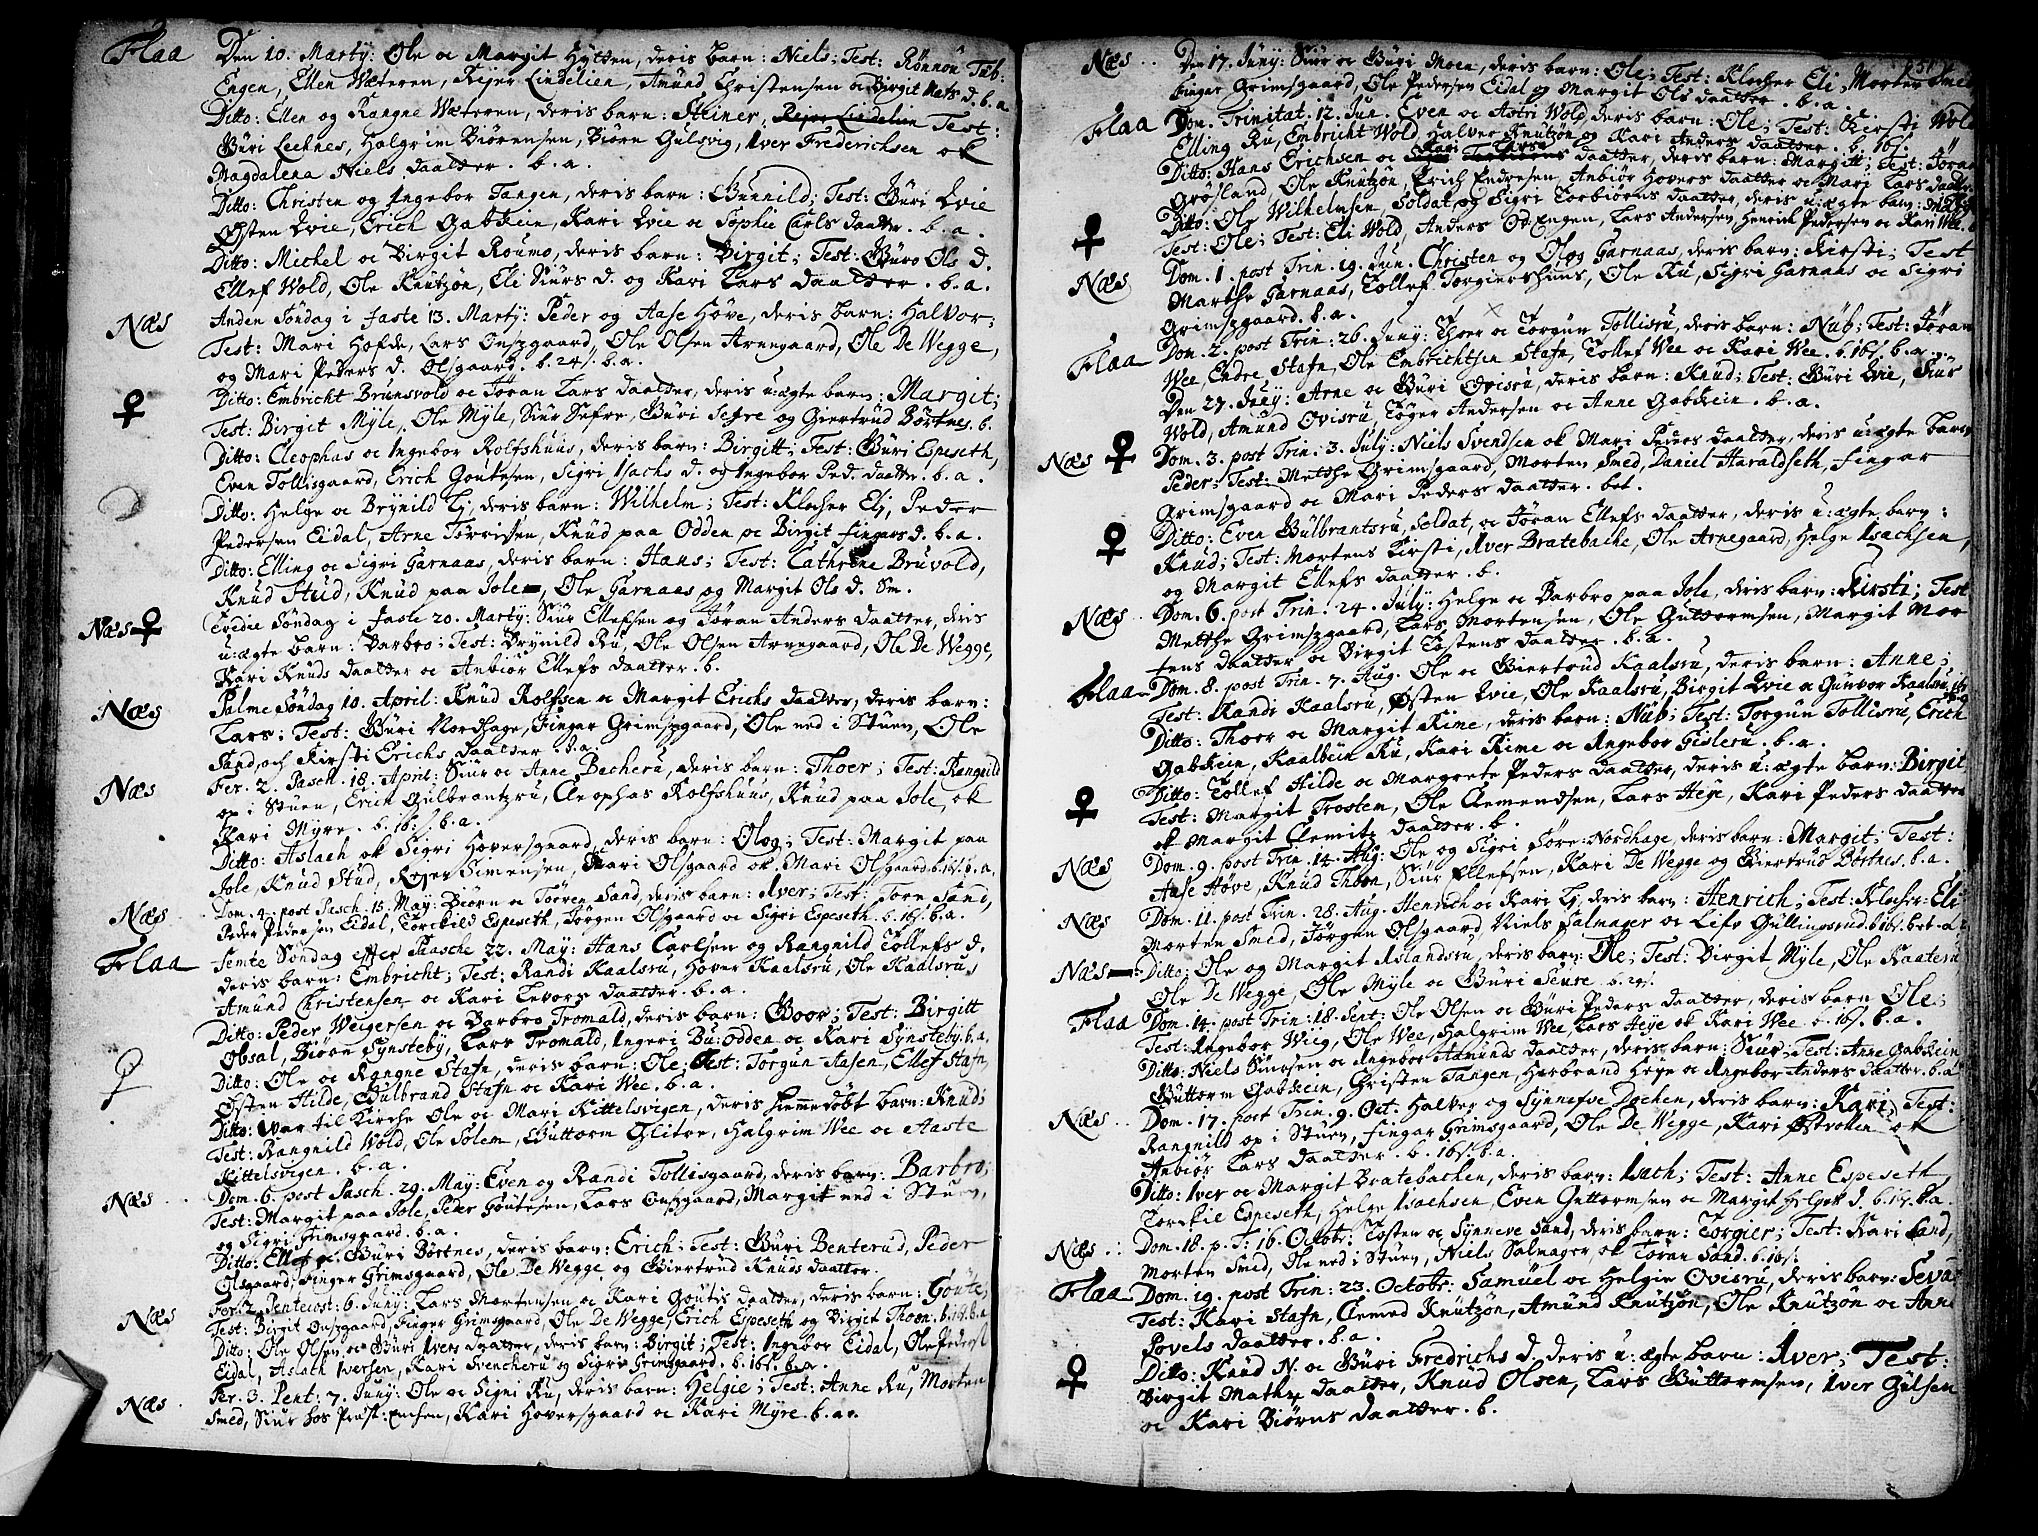 Flaa Den 10. Martÿ: Ole oc Margit Hÿtten, deris barn: Niels; Test: Rönnou Tub:
Engen, Ellen Wæteren, Rejer Lindelien, Amund Christensen oc Birgit Mats d. b. a.
Ditto: Ellen og Rangne Wæteren, deris barn: Steiner, Test:
Gúri Leknes, Halgrim Biörensen, Biörn Gulsvig, Iver Frederichsen ok
Magdalena Niels daatter. b. a.
Ditto: Christen og Ingebor Tangen, deris barn: Gunnild; Test: Gúri Lvie
Østen Lvie, Erich Gabkein, Kari Lvie oc Sophie Carls daatter. b. a.
Ditto: Michel oc Birgit Roúmo, deris barn: Birgit; Test: Gúro Ols d.
Ellef Wold, Ole Knutzön, Eli Siurs d. og Kari Lars daatter. b. a.
Næs Anden Söndag i faste 13. Martÿ: Peder og Aase Höve, deris barn: Halvor;
Test: Mari Hofde, Lars Onsgaard, Ole Olsen Arnegaard, Ole De Wegge,
og Mari Peders d. Olsgaard. b. 24/. b. a.
♀ Ditto: Embricht Brunsvold oc Jöran Lars daatter, deris u:ægte barn: Margit;
Test: Birgit Mÿle, Ole Mÿle, Siur Sefre, Gúri Sefre og Giertrud Börtnes. b.
Ditto: Cleophas oc Ingebor Rolfshuús, deris barn: Birgitt; Test: Gúri Espeseth,
Even Tollisgaard, Erich Goutesen, Sigri Isachs d. og Ingebor Ped. daatter. b. a.
Ditto: Helge oc Brÿnild Ej, deris barn: Wilhelm; Test: Klocker Elj, Peder
Pedersen Eidal, Arne Törrisen, Knúd paa Odden oc Birgit fingars d. b. a.
Ditto: Elling oc Sigri Garnaas, deris barn: Hans; Test: Cathrine Bruvold,
Knúd Stud, Knúd paa Jole, Ole Garnaas og Margit Ols d. Sm.
Næs ♀ Tredie Söndag i faste 20. Martÿ: Siur Ellefsen og Jöran Anders daatter, deris
u:ægte barn: Barbro; Test: Brÿnild Ru, Ole Olsen Arnegaard, Ole De Wegge,
Kari Knuds daatter oc Anbiör Ellefs daatter. b.
Næs Palme Söndag 10. April: Knúd Rolfsen oc Margit Erichs daatter, deris barn:
Lars; Test: Gúri Nordhage, Fingar Grimsgaard, Ole ned i Stuen, Ole
Sand, och Kirsti Erichs daatter b. a.
Næs Fer. 2. Pasch. 18. April: Siur oc Anne Becheru, deris barn: Thoer; Test: Rangnild
op i Stuen, Erich Gulbrantzru, Cleophas Rolfshuus, Knúd paa Jole, ok
Kari Mÿre. b. 16/. b. a.
Ditto: Aslach ok Sigri Hoversgaard, deris barn: Olog; Test: Margit paa
Jole, Knúd Stud, Rejer Simensen, Mari Olsgaard ok Mari Olsgaard. b. 16/. b. a.
Næs Dom. 4. post Pasch. 15. Maÿ: Biörn oc Tören Sand, deris barn: Iver; Test: Tore Sand,
Peder Pedersen Eidal, Torckild Espeseth, Jörgen Olsgaard oc Sigri Espeseth. b. 16/. b. a.
Flaa Femte Söndag efter Paasche 22. Maÿ: Hans Carlsen og Rangnild Tollefs d.
deris barn: Embricht; Test: Randi Kaalsru, Hover Kaalsru, Ole Kaalsru,
Amund Christensen oc Kari Levors daatter. b. a.
Ditto: Peder Weigersen oc Barbro Tromald, deris barn: Goor; Test: Birgitt
Obsal, Biörn Sÿnstebÿ, Lars Tromald, Ingeri Bu:Odden oc Kari Sÿnstebÿ. b. a.
Ditto: Ole oc Rangne Stafn, deris barn: Ole; Test: Torgun Aasen, Ellef Stafn,
Østen Hilde, Gulbrand Stafn oc Kari Wee. b. a.
Ditto: War til Kirche Ole oc Mari Kittelsvigen, deris hiemmedöbt barn: Knúd;
Test: Rangnild Wold, Ole Solem, Guttorm Glitre, Halgrim Wee oc Aaste
Kittelsvigen. b. a.
Næs Dom. 6. post Pasch. 29. Maÿ: Even og Randi Tollisgaard, deris barn: Barbro;
Test: Margit paa Jole, Peder Goutesen, Lars Onsgaard, Margit ned i Stuen,
og Sigri Grimsgaard. b. a.
Ditto: Ellef oc Gúri Börtnes, deris barn: Erich; Test: Gúri Benterud, Peder
Olsgaard, Finger Grimsgaard, Ole De Wegge og Giertrud Knúds daatter.
Næs Fer. 2. Pentecost: 6. Junÿ: Lars Mortensen oc Kari Goutis daatter, deris barn: Goute;
Test: Birgit Onsgaard, Finger Grimsgaard, Ole De Wegge, Erich Espeseth og Birgit Thoon. b. 16/. b. a.
Ditto: Ole Olsen oc Gúri Ivers daatter, deris barn: Birgit; Test: Ingebor Eidal, Ole Peders:
Eidal, Aslach Iversen, Kari Svencheru og Sigri Grimsgaard. b. 16/. b. a.
Næs Fer. 3. Pent: 7. Junÿ: Ole oc Signi Ru, deris barn: Helgie; Test: Anne Ru, Morten
Smed, Siur hos Præst: Ensen, Kari Hoversgaard oc Kari Mÿre. b. a.
Næs Den 17. Junÿ: Siur oc Gúri Moen, deris barn: Ole; Test: Klocher Eli, Morten Smed
fingar Grimsgaard, Ole Pedersen Eidal og Margit Ols daatter. b. a.
Flaa Dom. Trinitat. 12. Jun. Even oc Astri Wold, deris barn: Ole; Test: Kersti Wold
Elling Ru, Embricht Wold, Halvor Knutzön og Kari Anders daatter. b. 16/.
Ditto: Hans Erichsen oc Kari Lars daatter, deris barn: Margitt; Test: Jöran
Gröfland, Ole Knutzön, Erich Endresen, Anbiör Hovers daatter oc Mari Lars daatter
♀ Ditto: Ole Wilhelmsen, Soldat, og Sigri Torbiörns daatter, deris u:ægte barn:
Test: Ole; Test: Eli Wold, Anders Op Engen, Lars Andersen, Henrich Pedersen oc Kari Wee. b
Næs Dom. 1. post Trin. 19. Jun. Christen og Olog Garnaas, deris barn: Kirsti; Test
Marthe Garnaas, Tollef Torgiershuus, Ole Ru, Sigri Garnaas oc Sigri
Grimsgaard. b. a.
Flaa Dom. 2. post Trin. 26. Junÿ: Thoer oc Torgun Tollisru, deris barn: Nub; Test: Jöran
Wee, Endre Stafn, Ole Embrichtsen Stafn, Tollef Wee oc Kari Wee. b. 16/. b. a.
Den 27. Junÿ: Arne oc Gúri Ovisru, deris barn: Knúd; Test: Gúri Lvie, Siur
Wold, Amund Ovisru, Töger Andersen oc Anne Gabkein. b. a.
Næs ♀ Dom. 3. post Trin. 3. Julÿ: Niels Svendsen ok Mari Peders daatter, deris u:ægte barn
Peder; Test: Metthe Grimsgaard, Morten Smed, Daniel Haraldseth, Fingar
Grimsgaard oc Mari Peders daatter. bet.
♀ Ditto: Even Gulbrantsru, Soldat, oc Jöran Ellefs daatter, deris u:ægte barn:
Knúd; Test: Mortens Kirsti, Iver Bratebache, Ole Arnegaard, Helge Isachsen,
og Margit Ellefs daatter. b.
Næs Dom. 6. post Trin. 24. Julÿ: Helge oc Barbro paa Jole, deris barn: Kirsti; Test
Metthe Grimsgaard, Lars Mortensen, Ole Guttormsen, Margit Mor
tens daatter oc Birgit Tostens daatter. b. a.
Flaa Dom. 8. post Trin. 7. Aug. Ole oc Giertrud Kaalsru, deris barn: Anne;
Test: Randi Kaalsru, Østen Lvie, Ole Kaalsru, Birgit Lvie oc Gunvor Kaalsru
Ditto: Thoer oc Margit Rime, deris barn: Nub; Test: Torgun Tollisru, Erich
Gabkein, Kaalbein Ru, Kari Rime oc Angebor Gisleru. b. a.
♀ Ditto: Tollef Hilde oc Margrete Peders daatter, deris u:ægte barn: Birgit,
Test: Margit Trosten, Ole Clemendsen, Lars Heje, Kari Peders daatter
ok Margit Clemitz daatter. b.
Næs Dom. 9. post Trin. 14. Aug: Ole og Sigri Söre:Nordhage, deris barn: Margit; Test:
Aase Höve, Knúd Thoon, Siur Ellefsen, Kari De Wegge og Giertrud Börtnes. b. a.
Næs Dom. 11. post Trin. 28. Aug. Henrich oc Kari Ej, deris barn: Henrich; Test: Klocher Eli
Morten Smed, Jörgen Olsgaard, Niels Salmager oc Lisv Gullingsrud. b. 16/. bet. a.
Næs Ditto: Ole og Margit Aslandsru, deris barn: Ole; Test: Birgit Mÿle, Ole Raateru
Ole De Wegge, Ole Mÿle oc Gúri Seure. b. 24/.
Flaa Dom. 14. post Trin: 18. Sept: Ole Olsen oc Gúri Peders daatter, deris barn Ole;
Test: Angebor Wiig, Ole Wee, Halgrim Wee, Lars Heÿe ok Kari Wee. b. 16/. b. a.
Ditto: Niels Simosen oc Angebor Aamunds daatter, deris barn: Siur; Test: Anne Gabkein
Guttorm Gabkein, Christen Tangen, Herbrand Heÿe og Angebor Anders daatter. b. a.
Næs Dom. 17. post Trin. 9. Oct. Halvor og Sÿnnefve Dochen, deris barn: Kari; Test:
Rangnild op i Stuen, Fingar Grimsgaard, Ole De Wegge, Kari Östroken ok
Anbiör Lars daatter. b. 16/. b. a.
Ditto: Iver oc Margit Bratebachen, deris barn: Isach; Test: Anne Espeseth
Torckil Espeseth, Helge Isachsen, Even Guttormsen oc Margit Helges d. b. 16/. b. a.
Næs Dom. 18. p. T: 16. Octobr: Tosten oc Sÿnneve Sand, deris barn: Torgier; Test: Kari Sand,
Morten Smed, Ole ned i Stuen, Niels Salmager, ok Töran Sand. b. 16/.
Flaa Dom. 19. post Trin: 23. Octobr: Samúel oc Helgie Ovisru, deris barn: Seva
Test: Kari Stafn, Clemed Knutzön, Amund Knutzön, Ole Knutzön oc Anne
Povels daatter. b. a.
♀ Ditto: Knúd N. oc Gúri Fredrichs d. deris u:ægte barn: Iver; Test:
Birgit Mathz daatter, Knud Olsen, Lars Guttormsen, Iver Gulsen
oc Kari Biörns daatter. b.